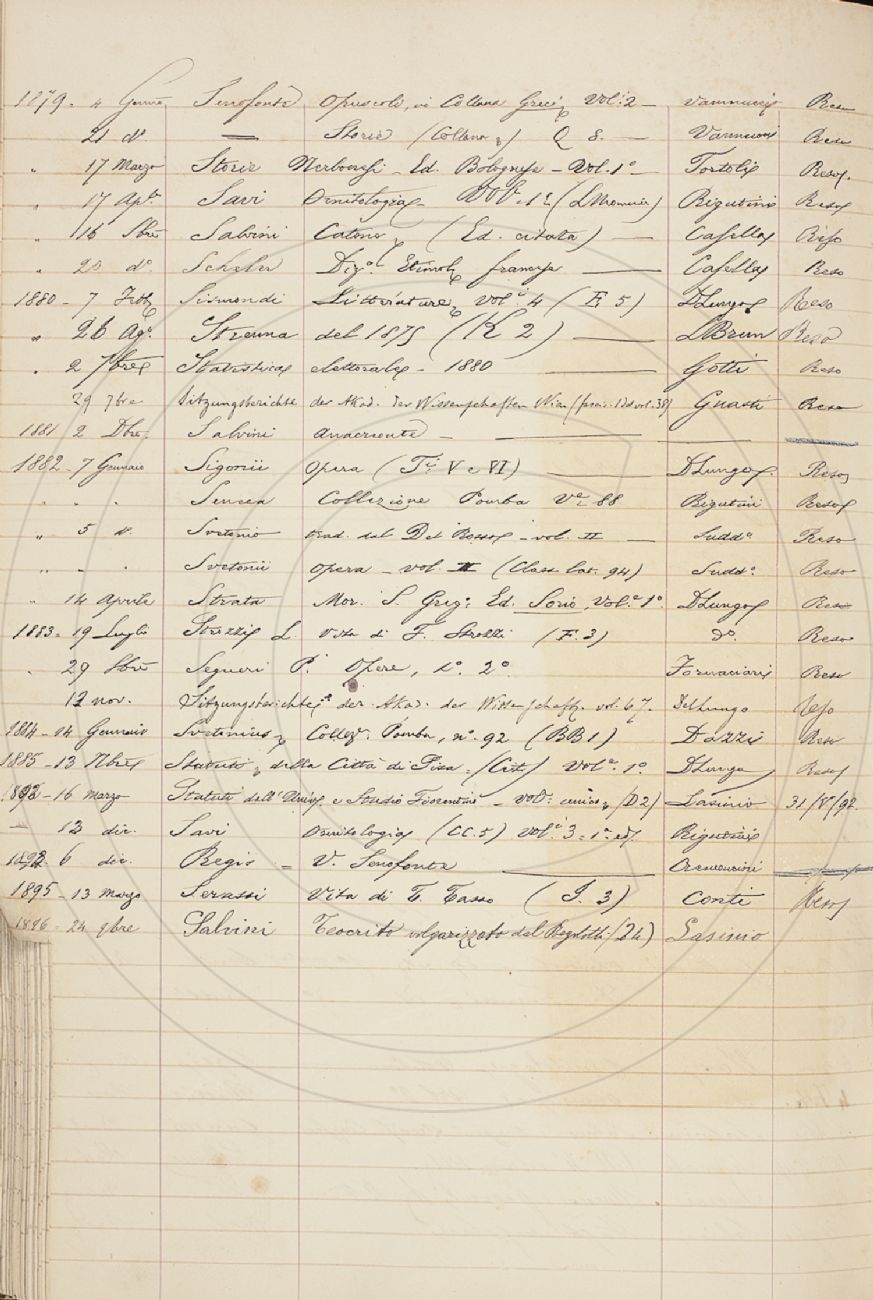 1879. 4 Genn. Senofonte Opuscoli, in Collana Greci Vol: 2 — Vannucci Reso
21 do — Storie (Collana) Q 8. — Vannucci Reso
" 17 Marzo Storie Nerbonesi - Ed. Bolognese - Vol. 1o — Tortoli Reso
" 17 Apr. Savi Ornitologia Vol. 1o Rigutini Reso
" 16 9bre Salvini Catone (Ed. citata) — Casella Riso
" 20 do. Scheler Dizo. Etimol. francese — Casella Reso
1880 - 7 Febb. Sismondi Littérature vol. 4 (F. 5) DLungo Reso
" 26 Ago. Strenna del 1875 (K 2) — LBrun Reso
" 2 7bre Statistica elettorale - 1880 — Gotti Reso
29 7bre Sitzungsberichte der Akad. der Wissenschaften Wien (fasc. 1 del vol. 38) Guasti Reso
1881 2 Dbre. Salvini Anacreonte —
1882 - 7 Gennaio Sigonii Opera (Ti V e VI) — DLungo. Reso
" " Seneca Collezione Pomba Ve 88 Rigutini Reso
" 5 d. Svetonio trad. dal Del Rosso - vol. II — Suddo Reso
" " Svetonii Opera - vol. II (Class. lat. 94) Suddo. Reso
" 14 Aprile Strata Mor. S. Grego. Ed. Sorio, Vole. 1o. DLungo Reso
1883 - 19 Luglio Strozzi L. Vita di F. Strozzi (F. 3) Do. Reso
" 29 8bre Segneri P. Opere, 1o. 2o. Fornaciari Reso
12 nov. Sitzungsberichte der Akad. der Wissenschaft. vol. 67. Del Lungo Reso
1884 - 14 Gennaio Svetonius Collez. Pomba, no. 92 (BB1) Dazzi Reso
1885 - 13 Xbre Statuti della Città di Pisa (Cit.) Vole. 1o. DLungo Reso
1892 - 16 Marzo Statuti dell'Univ. e Studio Fiorentino - vol: unico (D2) Lasinio 31/V/92.
— 12 dic. Savi Ornitologia (CC. 5) vol. 3 = 1a ed. Rigutini
1892. 6 dic. Regis = V. Senofonte —
1895 - 13 Marzo Serassi Vita di T. Tasso (I. 3) Conti Reso
1896 - 24 9bre Salvini Teocrito volgarizzato dal Lasinio